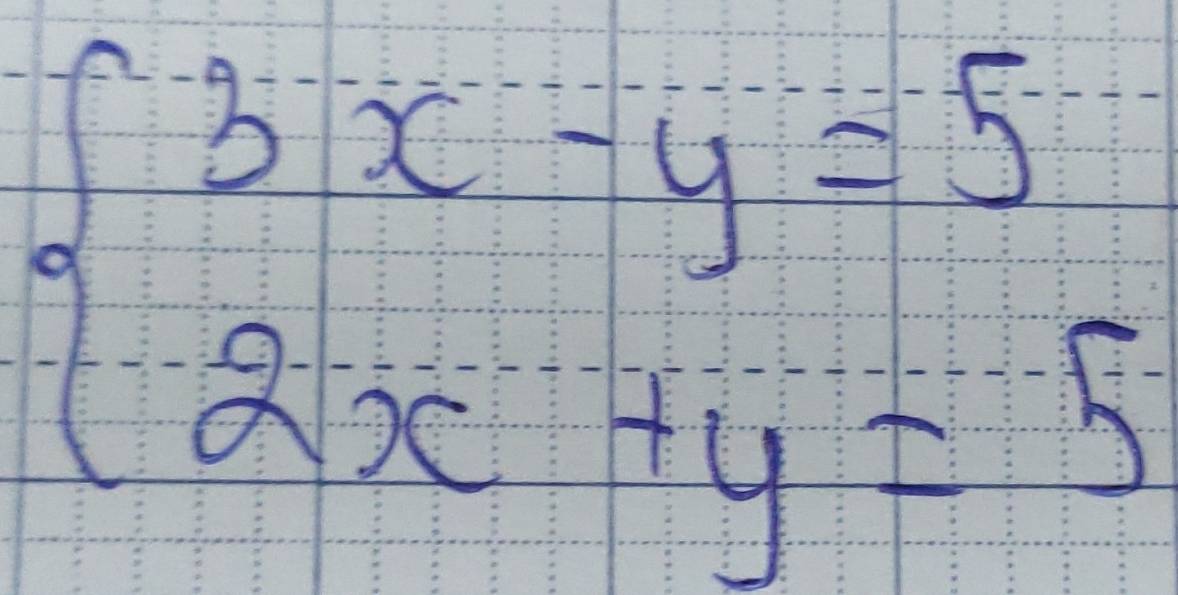 3x - y = 5
2x + y = 5